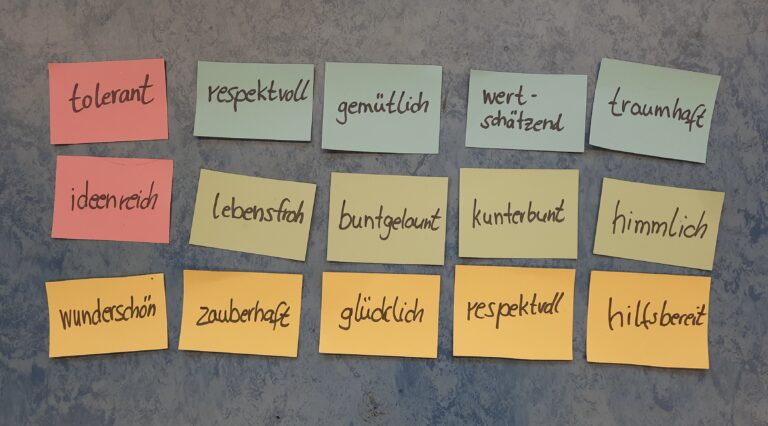 tolerant
respektvoll
gemütlich
wert-
schätzend
traumhaft
ideenreich
lebensfroh
buntgelaunt
kunterbunt
himmlich
wunderschön
zauberhaft
glücklich
respektvoll
hilfsbereit